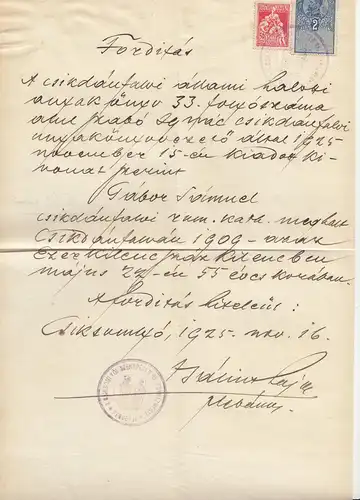 Fordítás
A csikdánfalvi állami halotti
anyakönyv 33. folyószáma
alatt Szabó Ignác csikdánfalvi
anyakönyvvezető által 1925
november 15-én kiadott ki-
vonat szerint
Gábor Sámuel
csikdánfalvi róm. kath. meghalt
Csikdánfalván 1909 - azaz
Ezerkilencszázkilencben
május 24-én 55 éves korában.
A fordítás hiteléül:
Csiksomlyó, 1925. nov. 16.
2